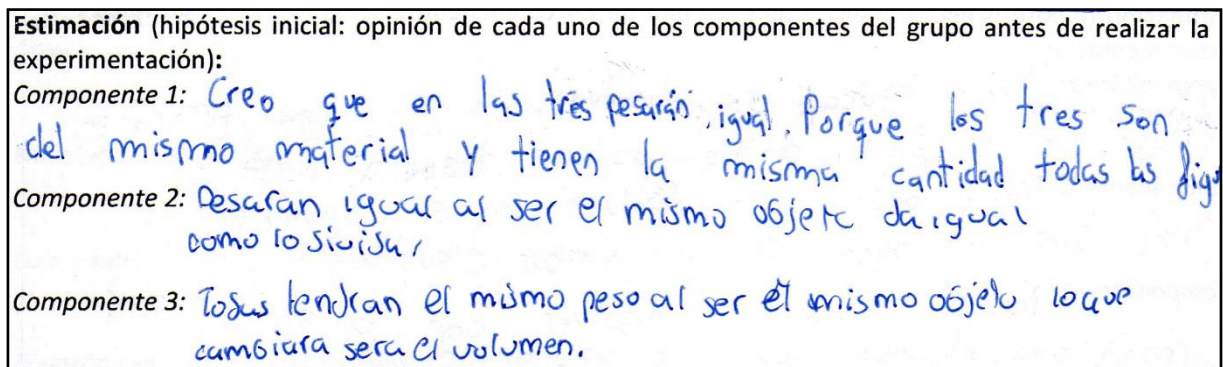 Estimación (hipótesis inicial: opinión de cada uno de los componentes del grupo antes de realizar la
experimentación):
Componente 1: Creo que en las tres pesarán igual. Porque los tres son
del mismo material y tienen la misma cantidad todas las figu
Componente 2: Pesaran igual al ser el mismo objeto da igual
como lo
Componente 3: Todas tendran el mismo peso al ser él mismo objeto lo que
cambiara sera el volumen.